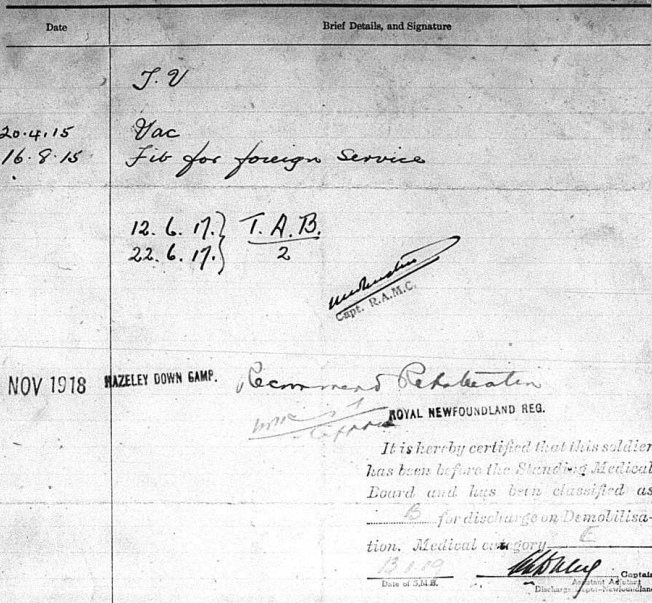 Date Brief Details, and Signature
T.V
20.4.15 Vac
16.8.15 Fit for foreign Service
12.6.17. } T.A.B.
22.6.17. } 2
Capt. R.A.M.C.
NOV 1918 HAZELEY DOWN CAMP. Recommend Repatriation
ROYAL NEWFOUNDLAND REG.
It is hereby certified that this soldier
has been before the Standing Medical
Board and has been classified as
B for discharge on Demobilisa-
tion. Medical category E
Date of S.M.B. Captain
Assistant Adjutant
Discharge Depot-Newfoundland